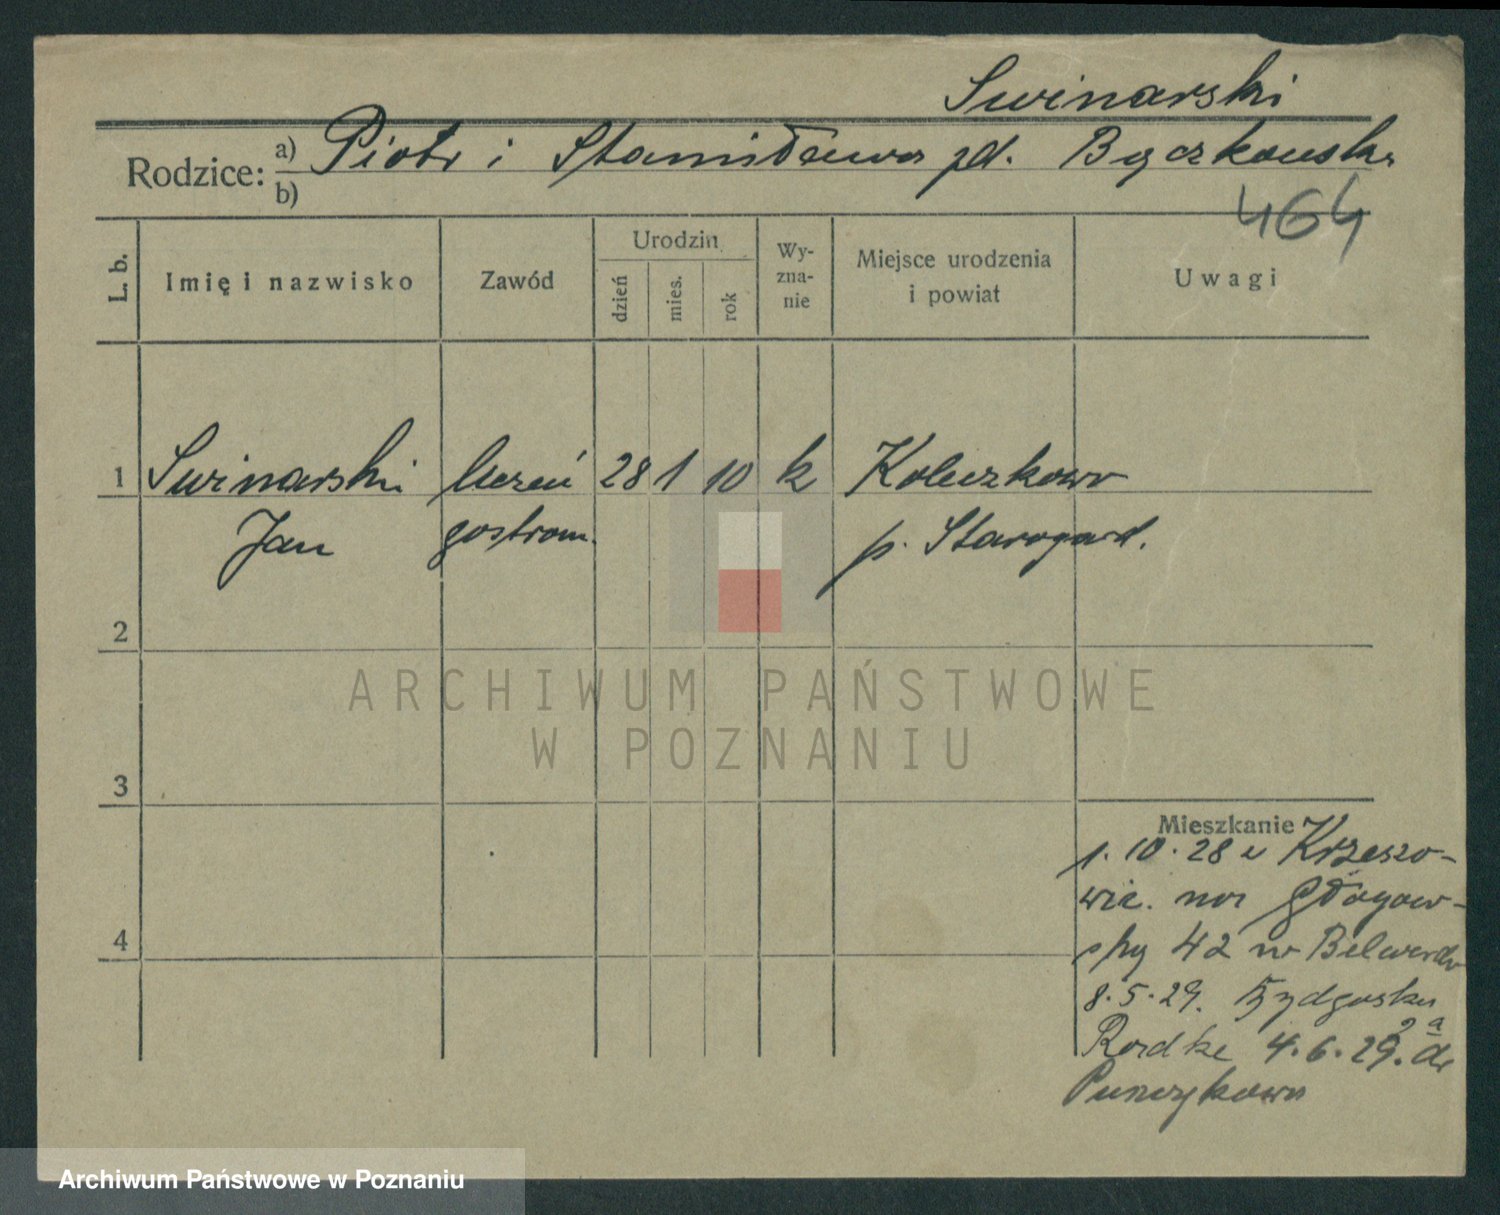 Swinarski
Rodzice: a) Piotr i Stanisława zd. Bączkowska
b)
464
L. b.
Imię i nazwisko
Zawód
Urodzin
dzień
mies.
rok
Wy-
zna-
nie
Miejsce urodzenia
i powiat
Uwagi
1 Swinarski Uczeń 28 1 10 k Koleczkowo
Jan gostrom. p. Starogard.
2
3
4
Mieszkanie
1.10.28 z Krzeszo-
wic. na Głogow-
sky 42 w
8.5.29. Bydgoska
2 a
Radke 4.6.29. do
Puszczykowa
ARCHIWUM PAŃSTWOWE
W POZNANIU
Archiwum Państwowe w Poznaniu